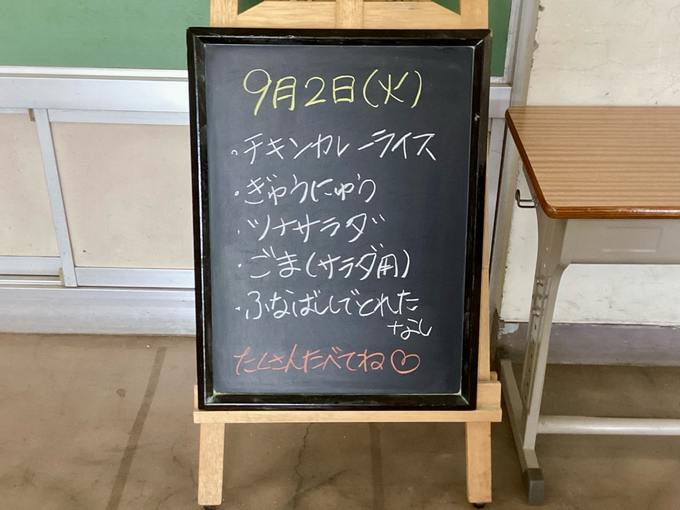 9月2日(火)
・チキンカレーライス
・ぎゅうにゅう
・ツナサラダ
・ごま(サラダ用)
・ふなばしでとれた
なし
たくさんたべてね♡